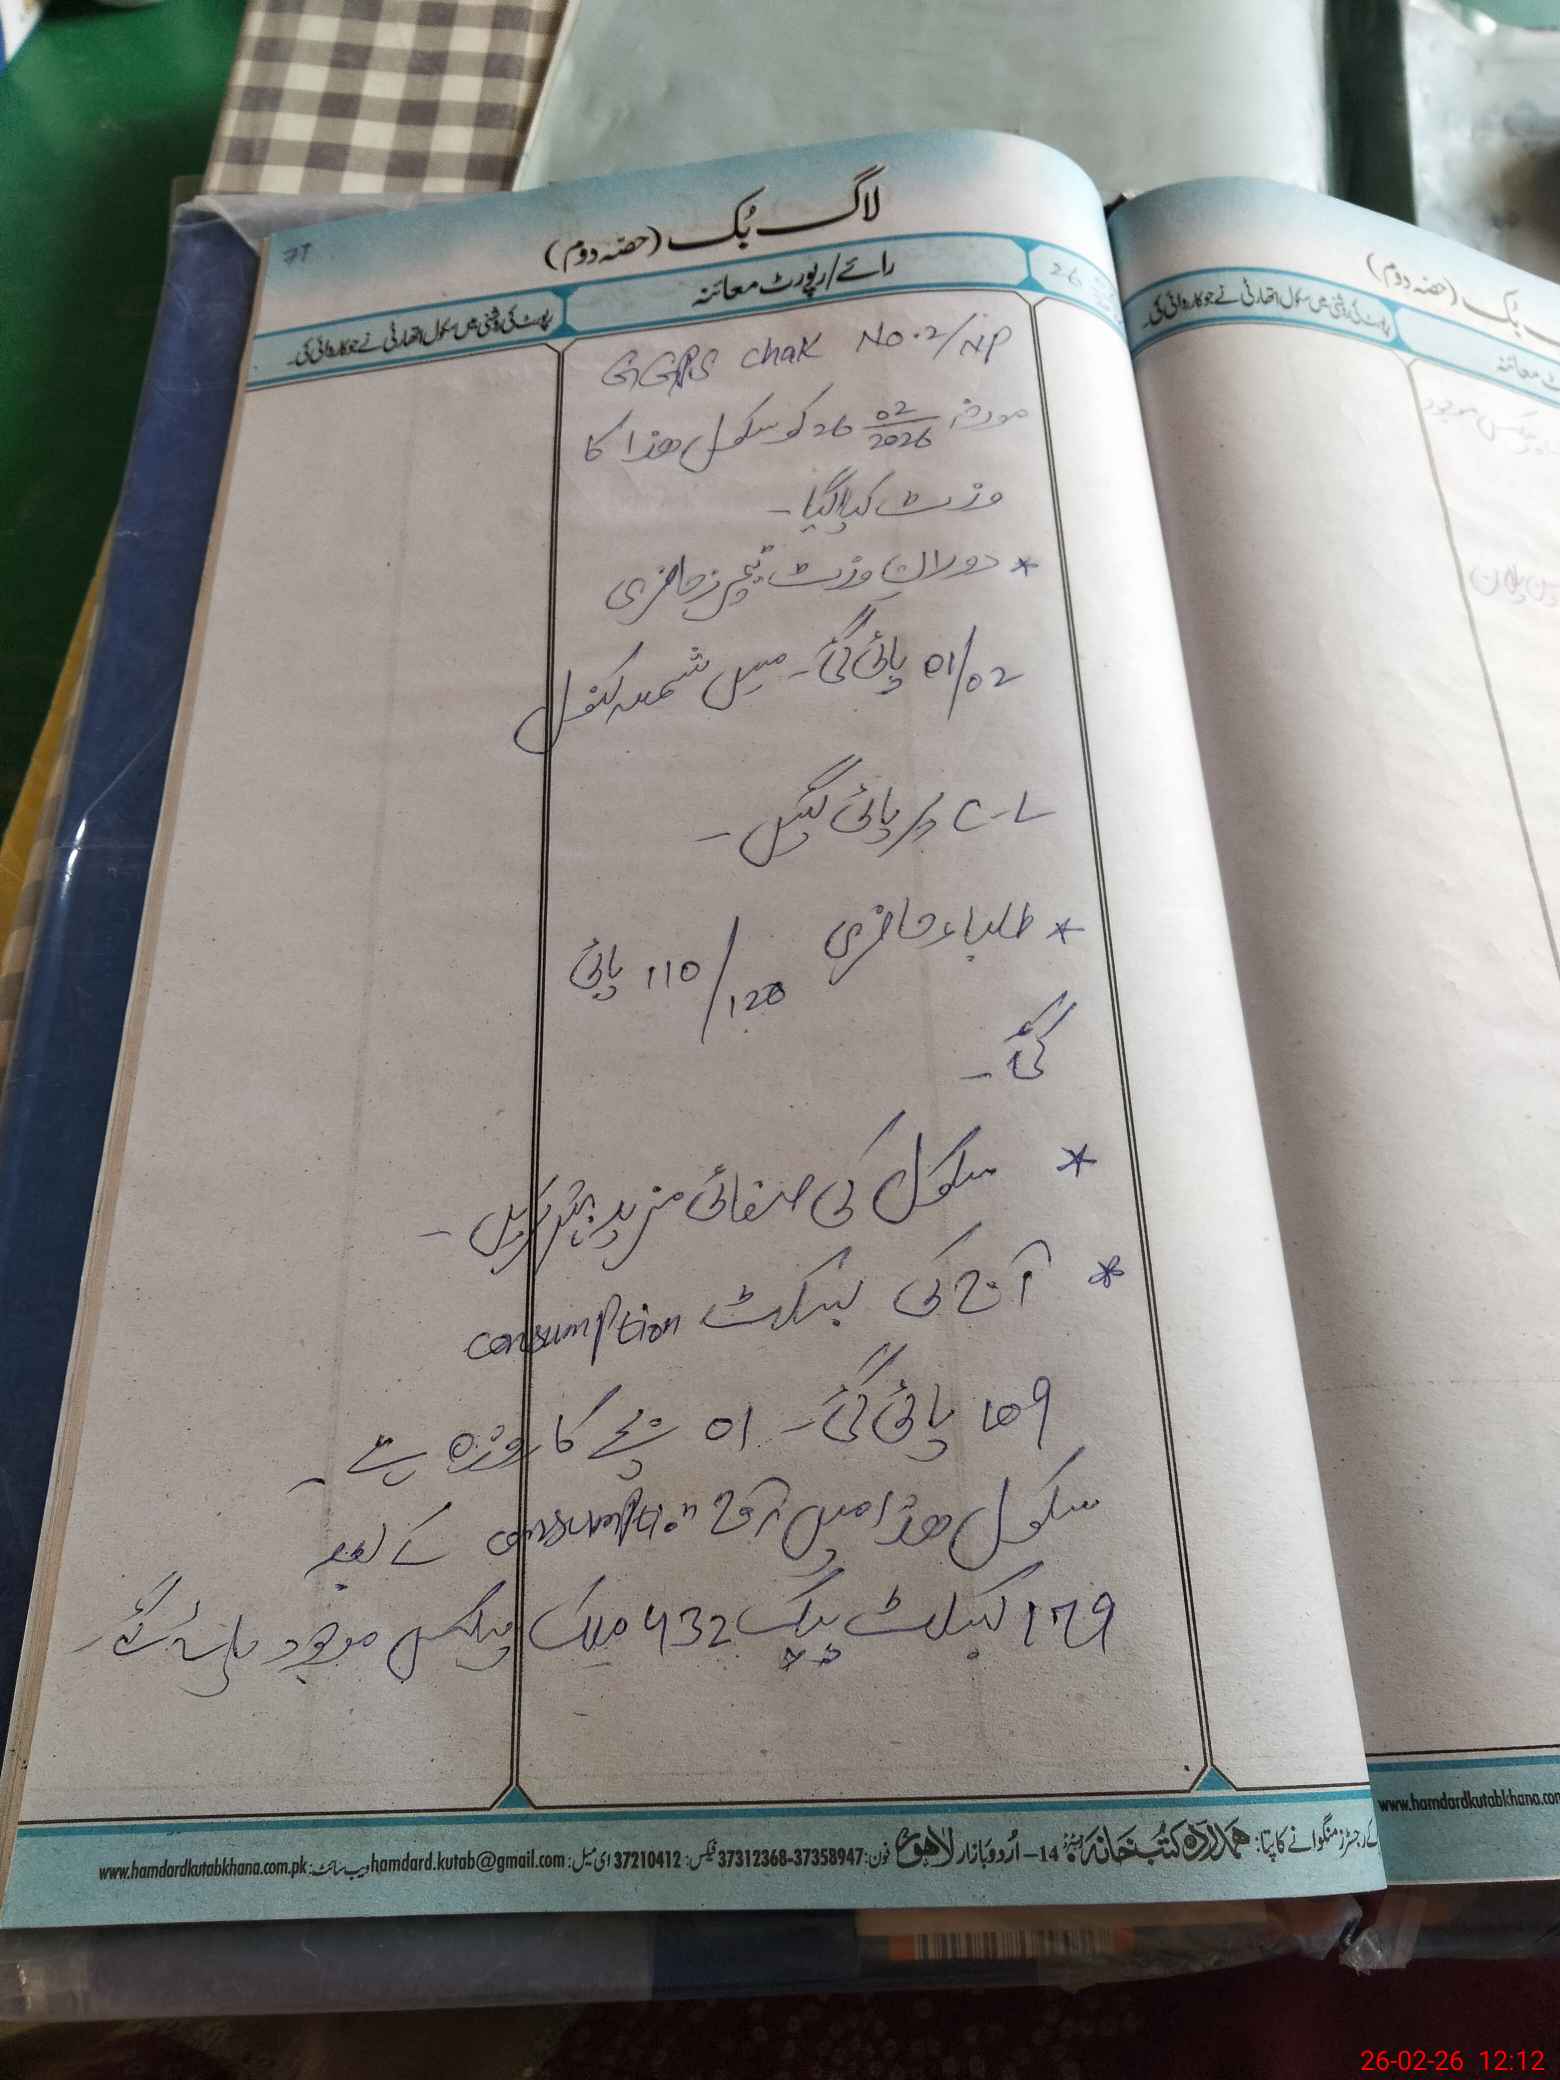 71
لاگ بُک (حصّہ دوم)
رائے/رپورٹ معائنہ
رپورٹ کی روشنی میں سکول اتھارٹی نے جو کاروائی کی۔
GGPS chak No.2/NP
مورخہ 26 02/2026 کو سکول ھذا کا
وزٹ کیا گیا۔
* دوران وزٹ ٹیچرز حاضری
01/02 پائی گئی۔ میں کنول
پر پائی گئیں۔
* طلباء حاضری 110/120 پائی
گئی۔
* سکول کی صفائی مزید بہتر کریں۔
* آج کی consumption
109 پائی گئی۔ 01 بچے کا روزہ ہے۔
سکول ھذا میں آج consumption کے بعد
179 پیک 432 ملک پیکس موجود پائے گئے۔
رجسٹرز منگوانے کا پتا: ہمدرد کتب خانہ 14-اُردو بازار لاہور فون: 37358947-37312368 فیکس: 37210412 ای میل: hamdard.kutab@gmail.com ویب سائٹ: www.hamdardkutabkhana.com.pk
بُک (حصّہ دوم)
رپورٹ کی روشنی میں سکول اتھارٹی نے جو کاروائی کی۔
معائنہ
موجود
www.hamdardkutabkhana.com
26-02-26 12:12